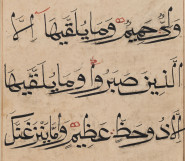 وَلِيٌّ حَمِيمٌ وَمَا يُلَقَّيهَا اِلَّا
الَّذِينَ صَبَرُوا وَمَا يُلَقَّيهَا
اِلَّا ذُو حَظٍّ عَظِيمٍ وَاِمَّا يَنْزَغَنَّكَ